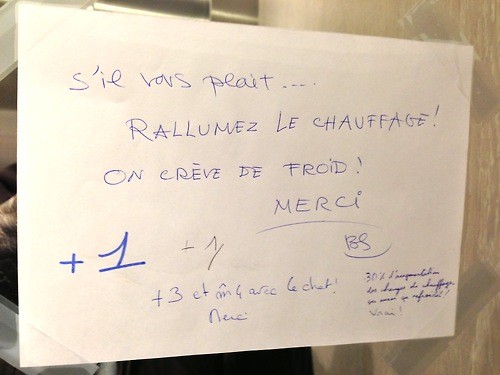 S'il vous plait....
RALLUMEZ LE CHAUFFAGE!
ON CRÈVE DE FROID!
MERCI
BS
+1
+1
+3 et m 4 avec le chat!
Merci
30% d'augmentation
des charges de chauffage,
Vrai!